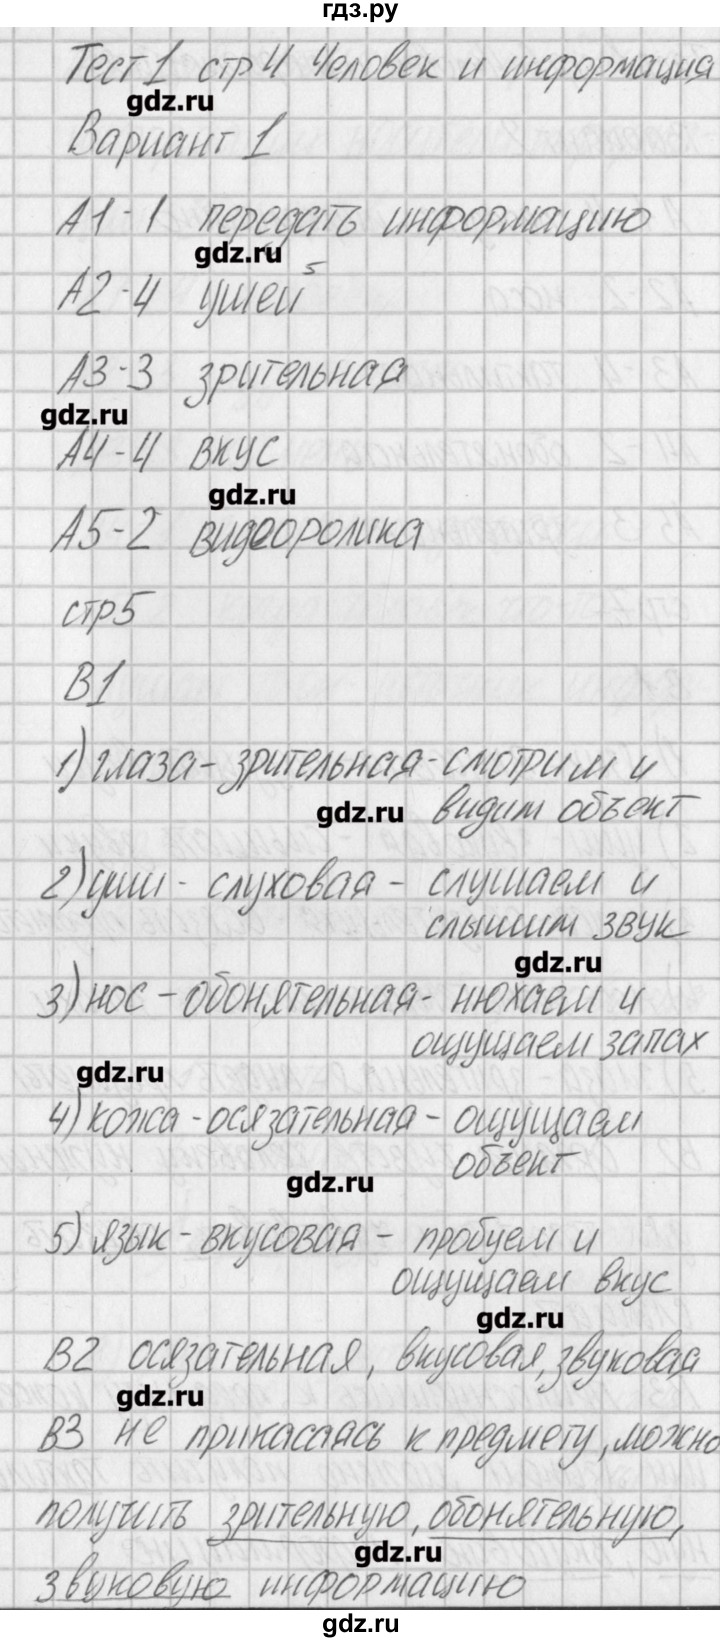 гдз.ру
Тест 1 стр 4 Человек и информация
gdz.ru
Вариант 1
А1-1 передать информацию
gdz.ru
А2-4 ушей
А3-3 зрительная
gdz.ru
А4-4 вкус
gdz.ru
А5-2 видеоролика
стр5
В1
1) глаза - зрительная - смотрим и
gdz.ru видим объект
2) уши - слуховая - слушаем и
слышим звук
gdz.ru
3) нос - обонятельная - нюхаем и
ощущаем запах
gdz.ru
4) кожа - осязательная - ощущаем
объект
gdz.ru
5) язык - вкусовая - пробуем и
ощущаем вкус
gdz.ru
В2 осязательная, вкусовая, звуковая
gdz.ru
В3 не прикасаясь к предмету, можно
получить зрительную, обонятельную,
gdz.ru
звуковую информацию
gdz.ru